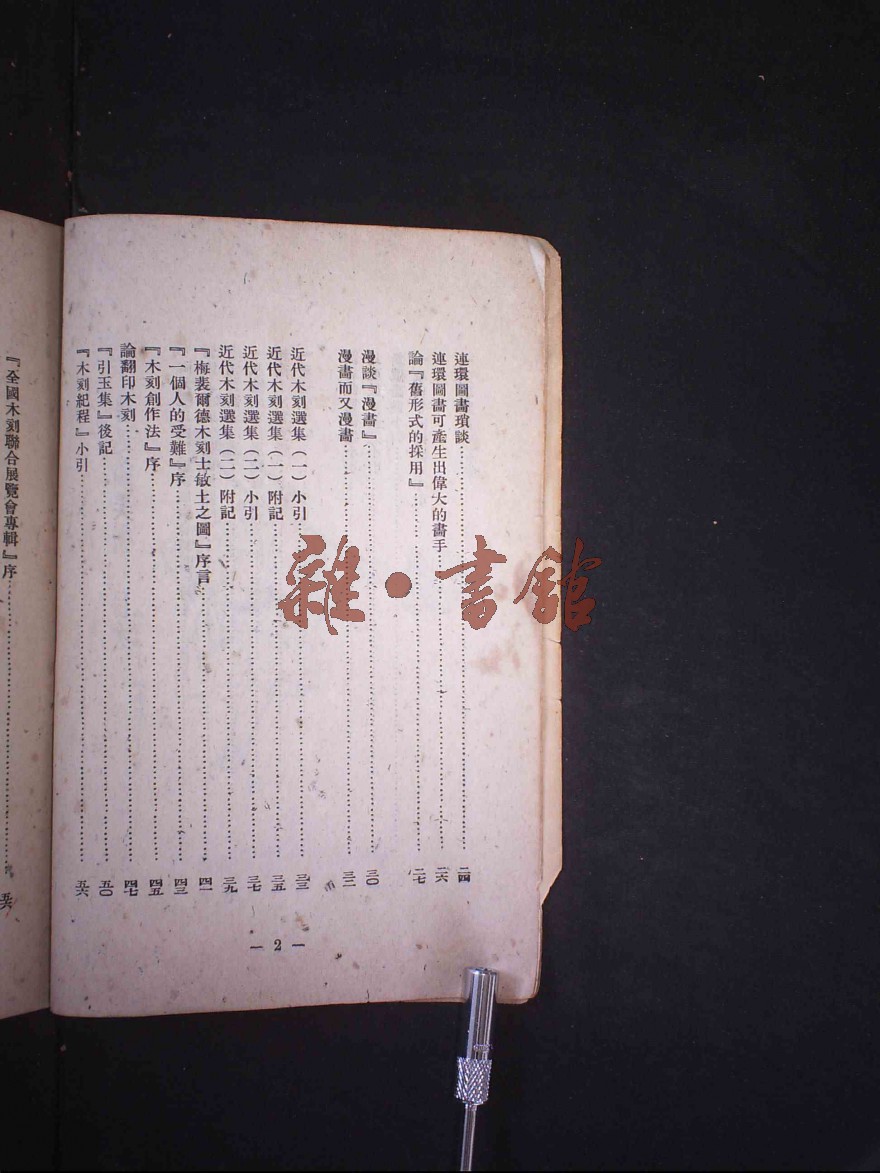 連環圖畫瑣談……二四
連環圖畫可產生出偉大的畫手……二六
論『舊形式的採用』……二七
漫談『漫畫』……三〇
漫畫而又漫畫……三二
近代木刻選集（一）小引……三三
近代木刻選集（一）附記……三五
近代木刻選集（二）小引……三七
近代木刻選集（二）附記……三九
『梅裴爾德木刻士敏土之圖』序言……四一
『一個人的受難』序……四三
『木刻創作法』序……四五
論翻印木刻……四七
『引玉集』後記……五〇
『木刻紀程』小引……五六
— 2 —
『全國木刻聯合展覽會專輯』序……
雜·書館